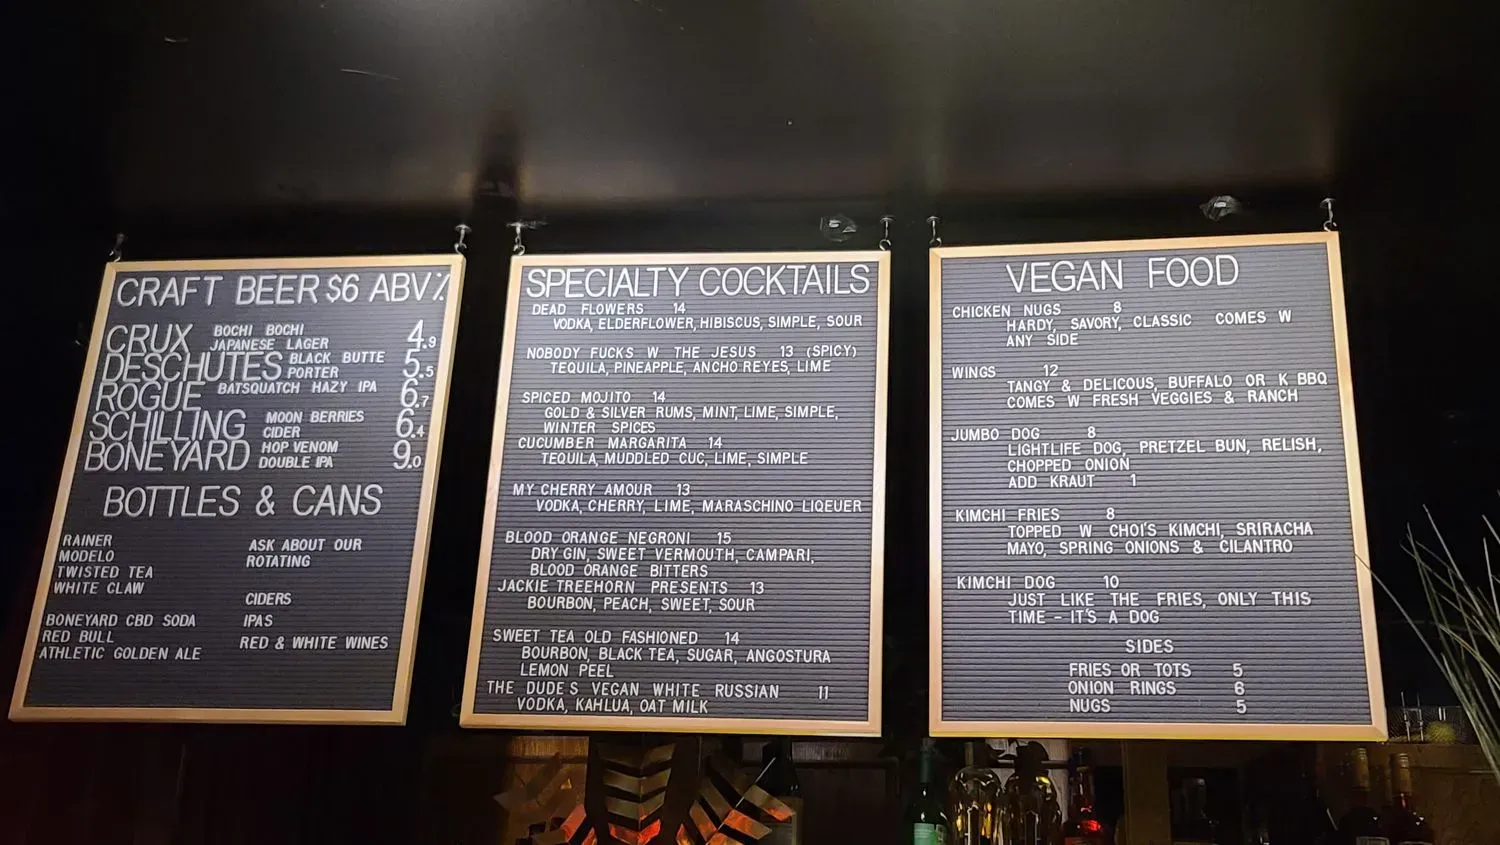 CRAFT BEER $6 ABV%
CRUX BOCHI BOCHI JAPANESE LAGER 4.9
DESCHUTES BLACK BUTTE PORTER 5.5
ROGUE BATSQUATCH HAZY IPA 6.7
SCHILLING MOON BERRIES CIDER 6.4
BONEYARD HOP VENOM DOUBLE IPA 9.0
BOTTLES & CANS
RAINER
MODELO
TWISTED TEA
WHITE CLAW
BONEYARD CBD SODA
RED BULL
ATHLETIC GOLDEN ALE
ASK ABOUT OUR
ROTATING
CIDERS
IPAS
RED & WHITE WINES
SPECIALTY COCKTAILS
DEAD FLOWERS 14
VODKA, ELDERFLOWER, HIBISCUS, SIMPLE, SOUR
NOBODY FUCKS W THE JESUS 13 (SPICY)
TEQUILA, PINEAPPLE, ANCHO REYES, LIME
SPICED MOJITO 14
GOLD & SILVER RUMS, MINT, LIME, SIMPLE,
WINTER SPICES
CUCUMBER MARGARITA 14
TEQUILA, MUDDLED CUC, LIME, SIMPLE
MY CHERRY AMOUR 13
VODKA, CHERRY, LIME, MARASCHINO LIQEUER
BLOOD ORANGE NEGRONI 15
DRY GIN, SWEET VERMOUTH, CAMPARI,
BLOOD ORANGE BITTERS
JACKIE TREEHORN PRESENTS 13
BOURBON, PEACH, SWEET, SOUR
SWEET TEA OLD FASHIONED 14
BOURBON, BLACK TEA, SUGAR, ANGOSTURA
LEMON PEEL
THE DUDE S VEGAN WHITE RUSSIAN 11
VODKA, KAHLUA, OAT MILK
VEGAN FOOD
CHICKEN NUGS 8
HARDY, SAVORY, CLASSIC COMES W
ANY SIDE
WINGS 12
TANGY & DELICOUS, BUFFALO OR K BBQ
COMES W FRESH VEGGIES & RANCH
JUMBO DOG 8
LIGHTLIFE DOG, PRETZEL BUN, RELISH,
CHOPPED ONION
ADD KRAUT 1
KIMCHI FRIES 8
TOPPED W CHOI'S KIMCHI, SRIRACHA
MAYO, SPRING ONIONS & CILANTRO
KIMCHI DOG 10
JUST LIKE THE FRIES, ONLY THIS
TIME - IT'S A DOG
SIDES
FRIES OR TOTS 5
ONION RINGS 6
NUGS 5